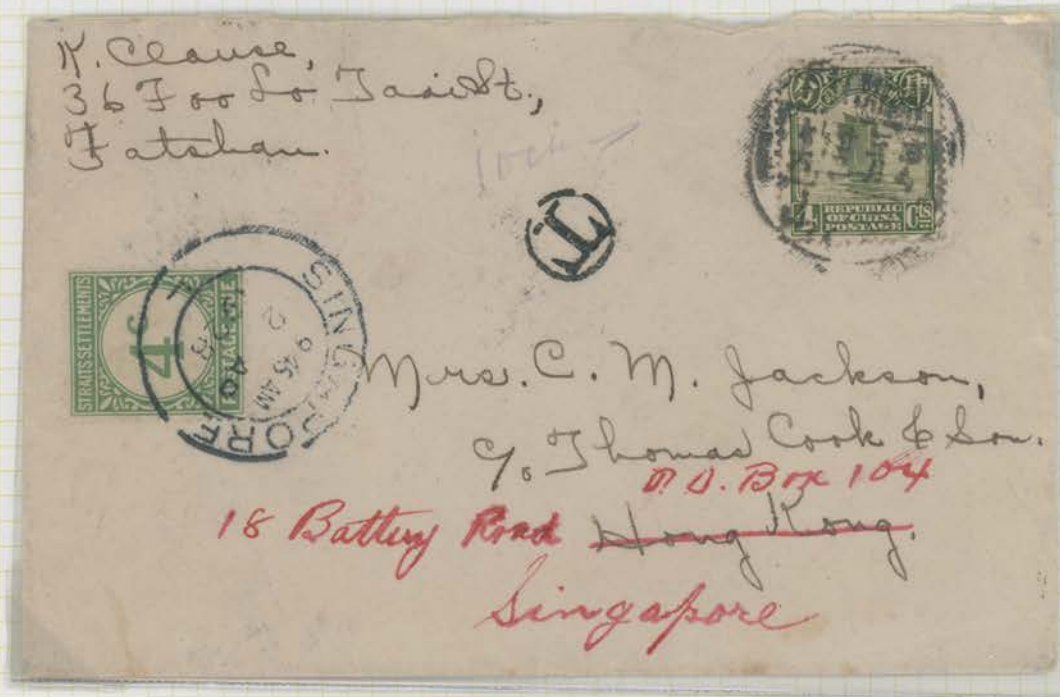 K. Clause,
36 Foo Lo Tsai St.,
Fatshan.
T
4 REPUBLIC OF CHINA POSTAGE Cts
STRAITS SETTLEMENTS
4c
SINGAPORE
9.45 AM
Mrs. C. M. Jackson,
c/o Thomas Cook & Son.
P.O. Box 104
18 Battery Road Hong Kong.
Singapore